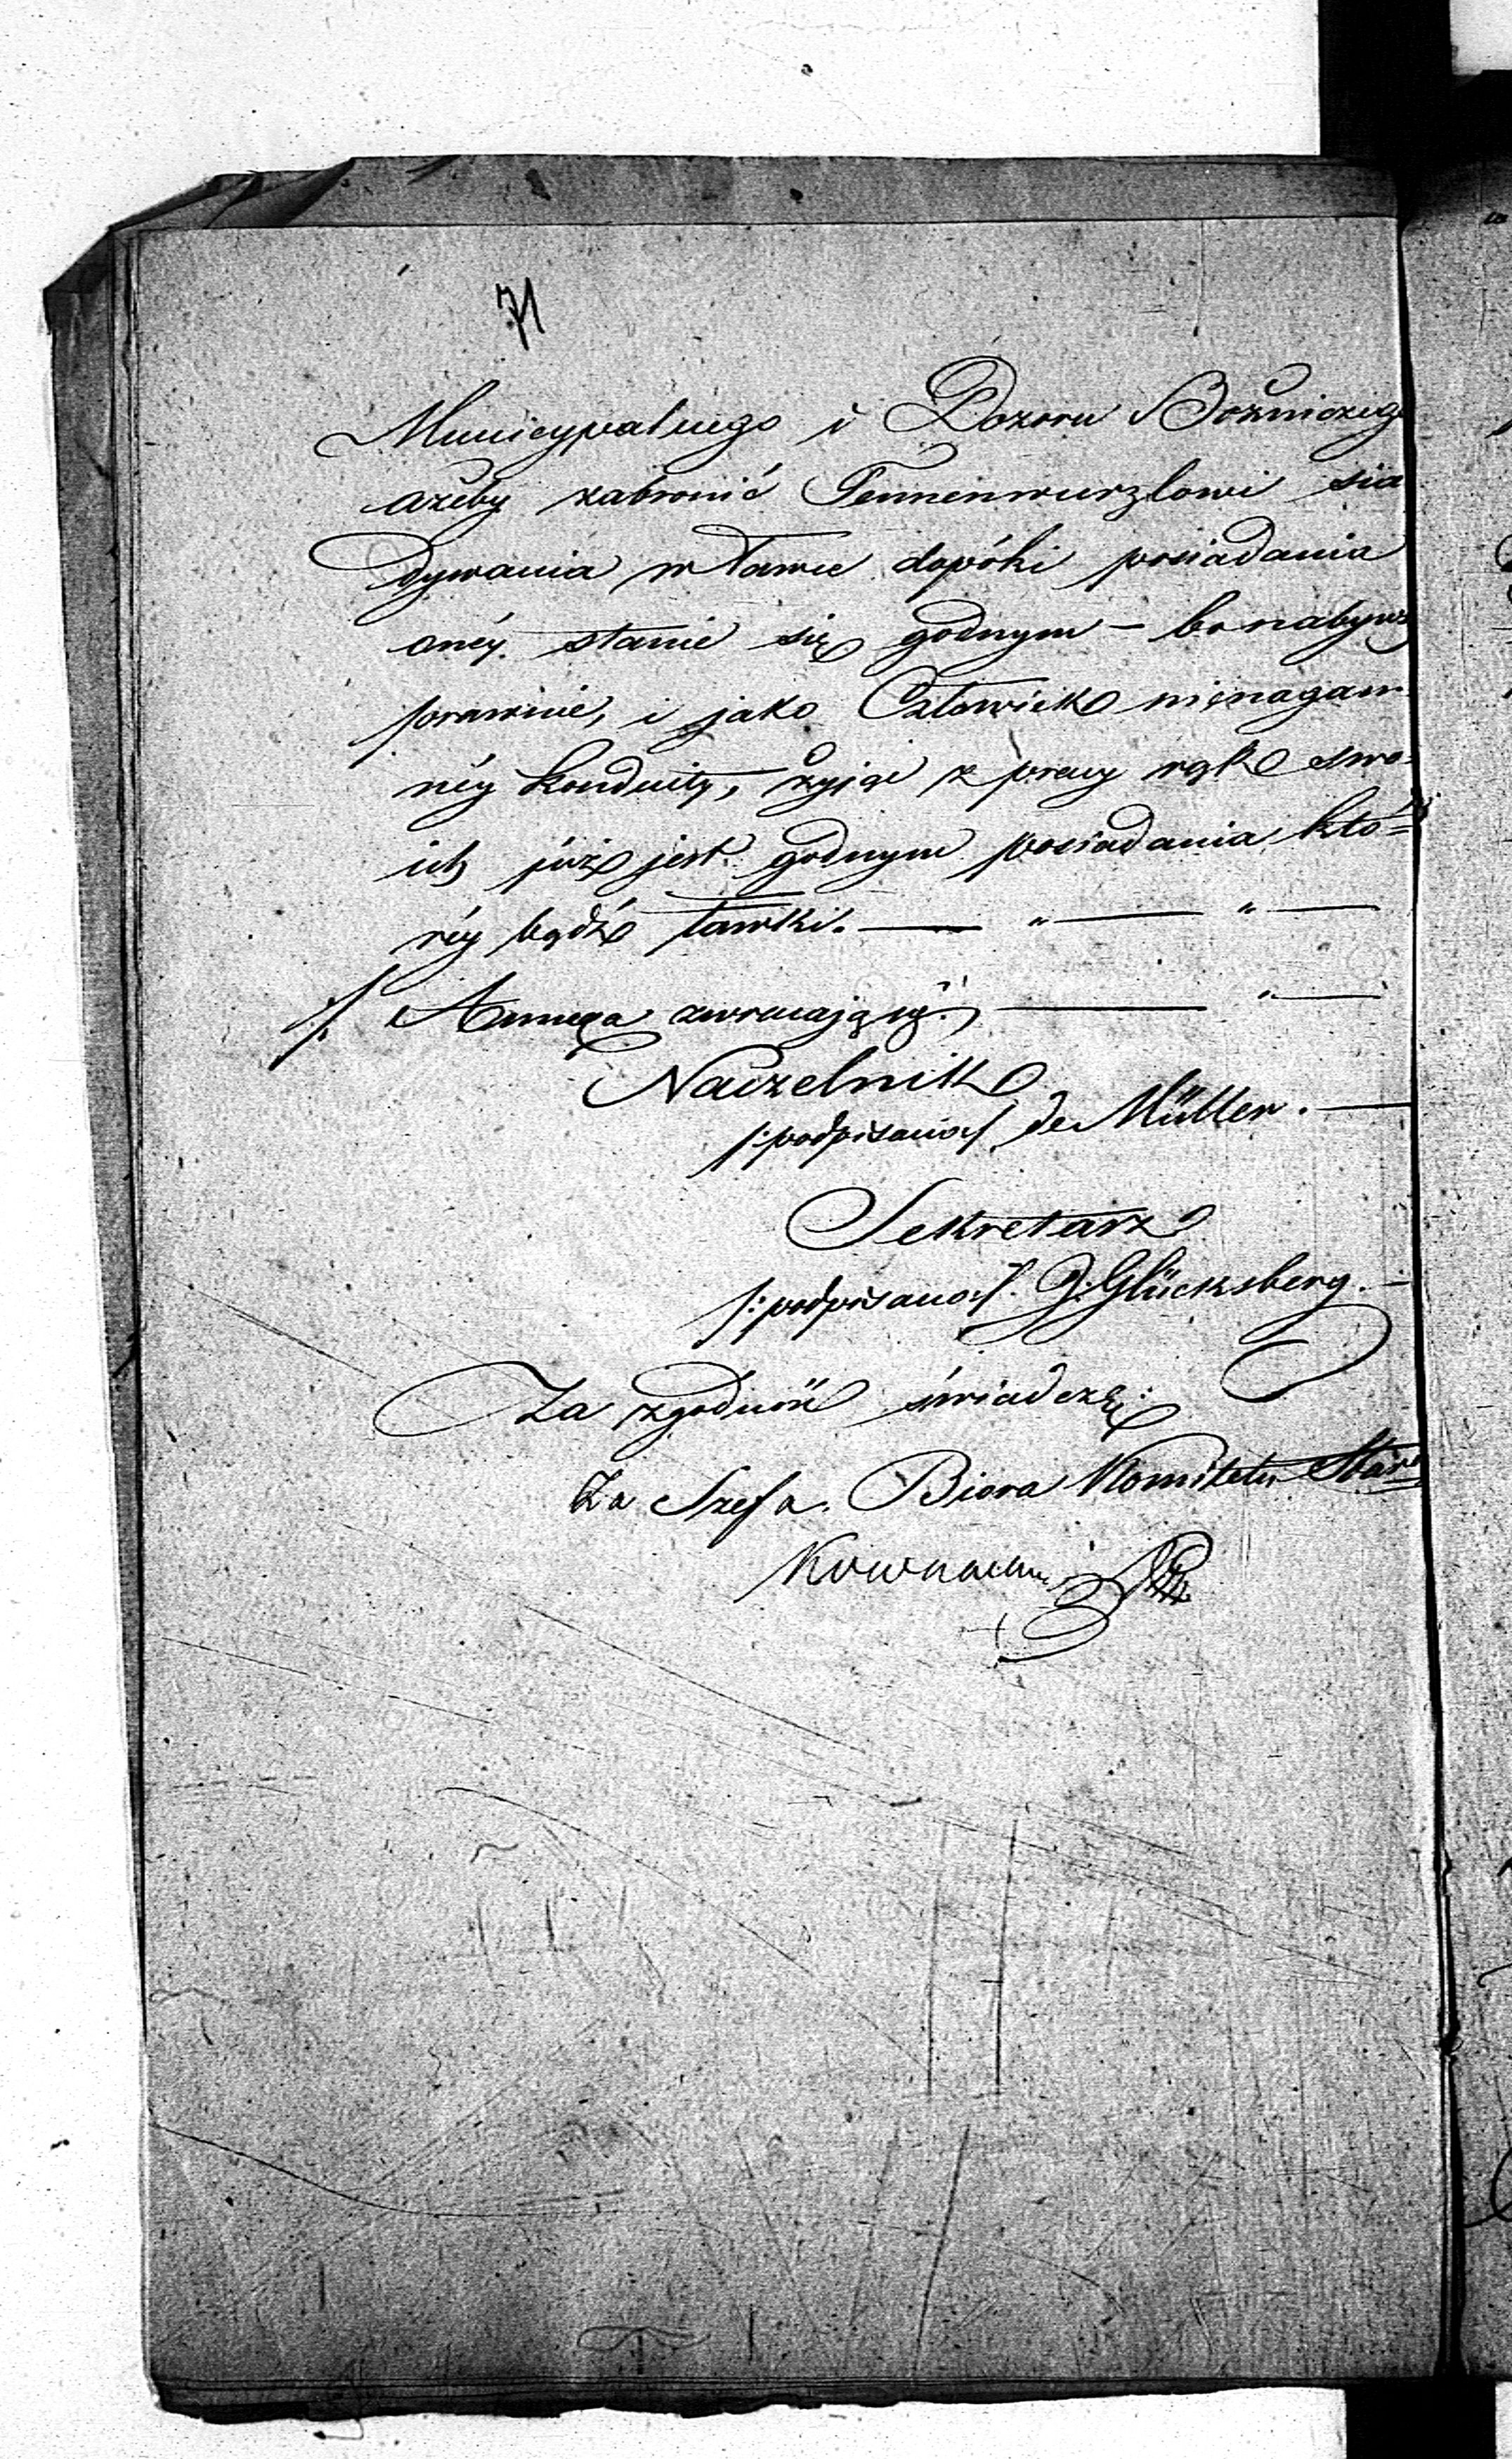 71
Municypalnego i Dozoru Bożniczego
ażeby zabronić Tennenwurzlowi sia
dywania w ławce dopóki posiadania
onéy stanie się godnym – bo nabywszy
prawnie, i jako Człowiek nienagan
néy konduity, żyiąc z pracy rąk swo-
ich już jest godnym posiadania któ=
réy bądź ławki. — " — " —
/. Annexa zwracaią się ./ — " —
Naczelnik
/:podpisano:/ de Müller. —
Sekretarz
/:podpisano:/ J: Glücksberg. —
Za zgodność świadczę:
Za Szefa Biora Komitetu Star: